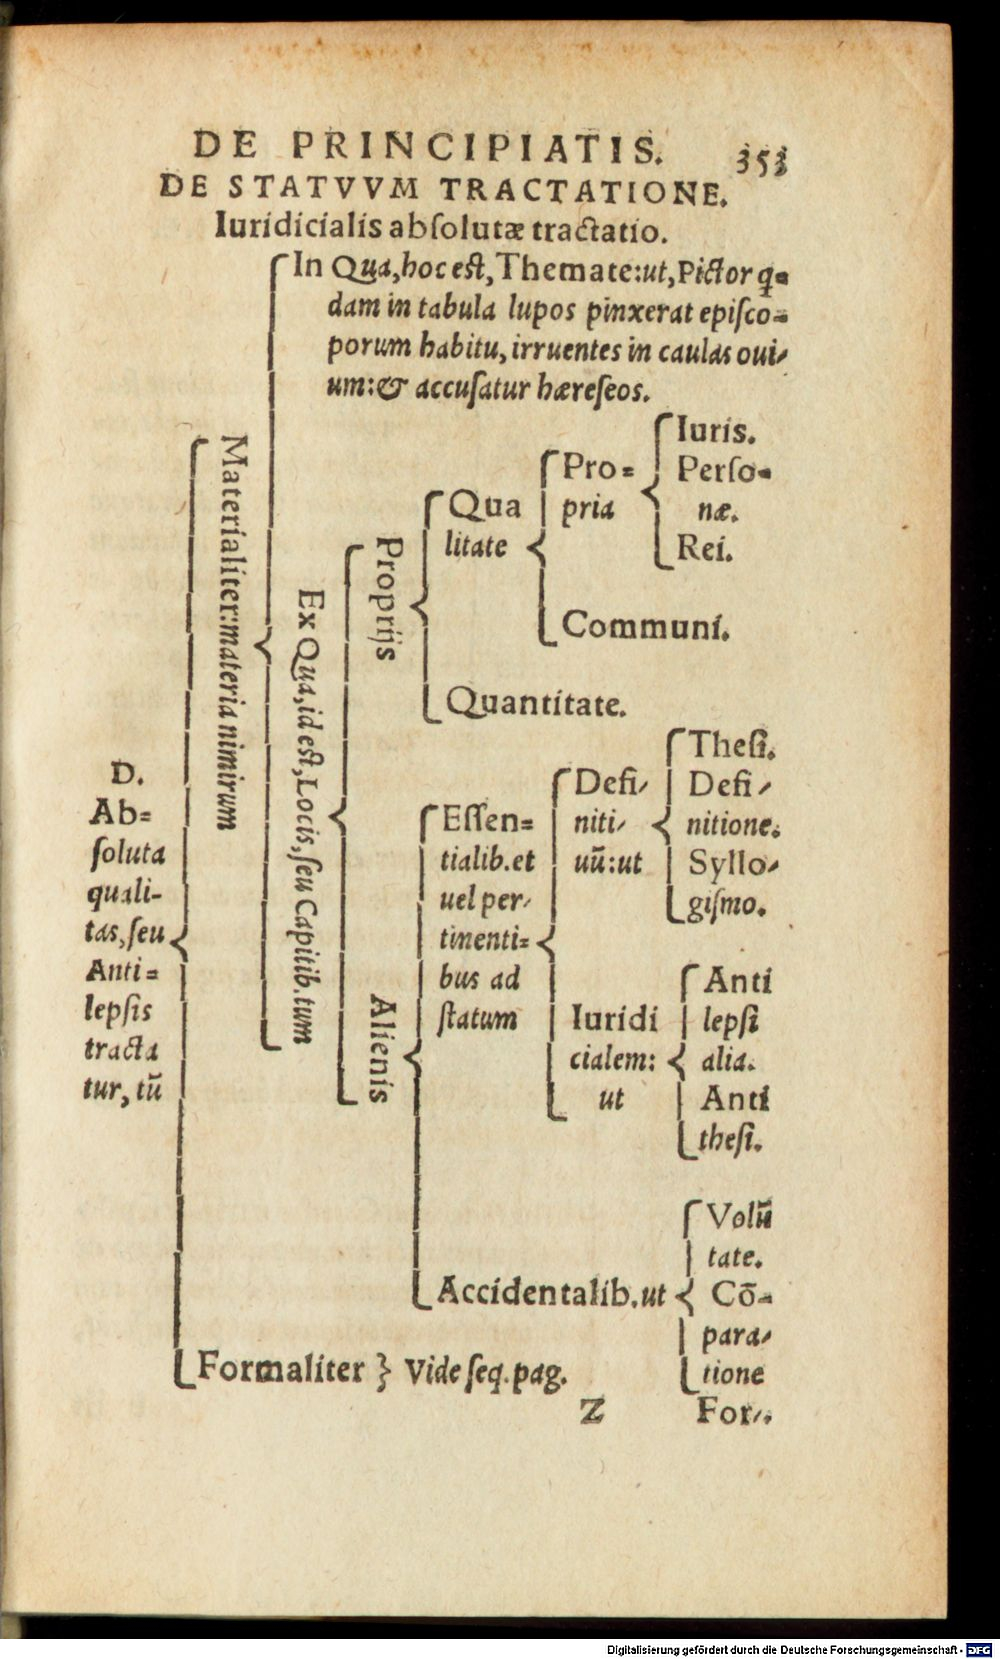 DE PRINCIPIATIS. 353
DE STATVVM TRACTATIONE.
Iuridicialis absolutæ tractatio.
In Qua, hoc est, Themate: ut, Pictor q̃=
dam in tabula lupos pinxerat episco=
porum habitu, irruentes in caulas oui-
um: & accusatur hæreseos.
D.
Ab=
soluta
quali-
tas, seu
Anti=
lepsis
tracta
tur, tũ
Materialiter: materia nimirum
Ex Qua, id est, Locis, seu Capitib. tum
Proprijs
Qua
litate
Pro=
pria
Iuris.
Perso=
næ.
Rei.
Communi.
Quantitate.
Alienis
Essen=
tialib. et
uel per-
tinenti=
bus ad
statum
Defi-
niti-
uũ: ut
Thesi.
Defi-
nitione.
Syllo-
gismo.
Iuridi
cialem:
ut
Anti
lepsi
alia.
Anti
thesi.
Accidentalib. ut
Volũ
tate.
Cõ-
para-
tione
Formaliter } Vide seq. pag.
Z For-.
Digitalisierung gefördert durch die Deutsche Forschungsgemeinschaft - DFG